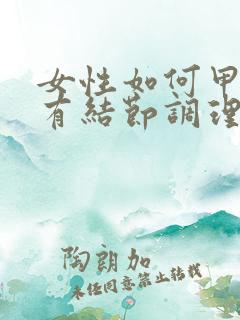 女性如何甲
有結節調理
陶朗加
未经同意禁止转载